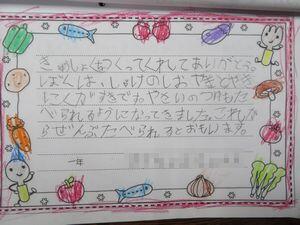 きゅうしょくをつくってくれてありがとう。
ぼくは、しゃけのしおやきとやき
にくがすきでおやさいのつけもた
べられるようになってきました。これか
らぜんぶたべられるとおもいます。
一年